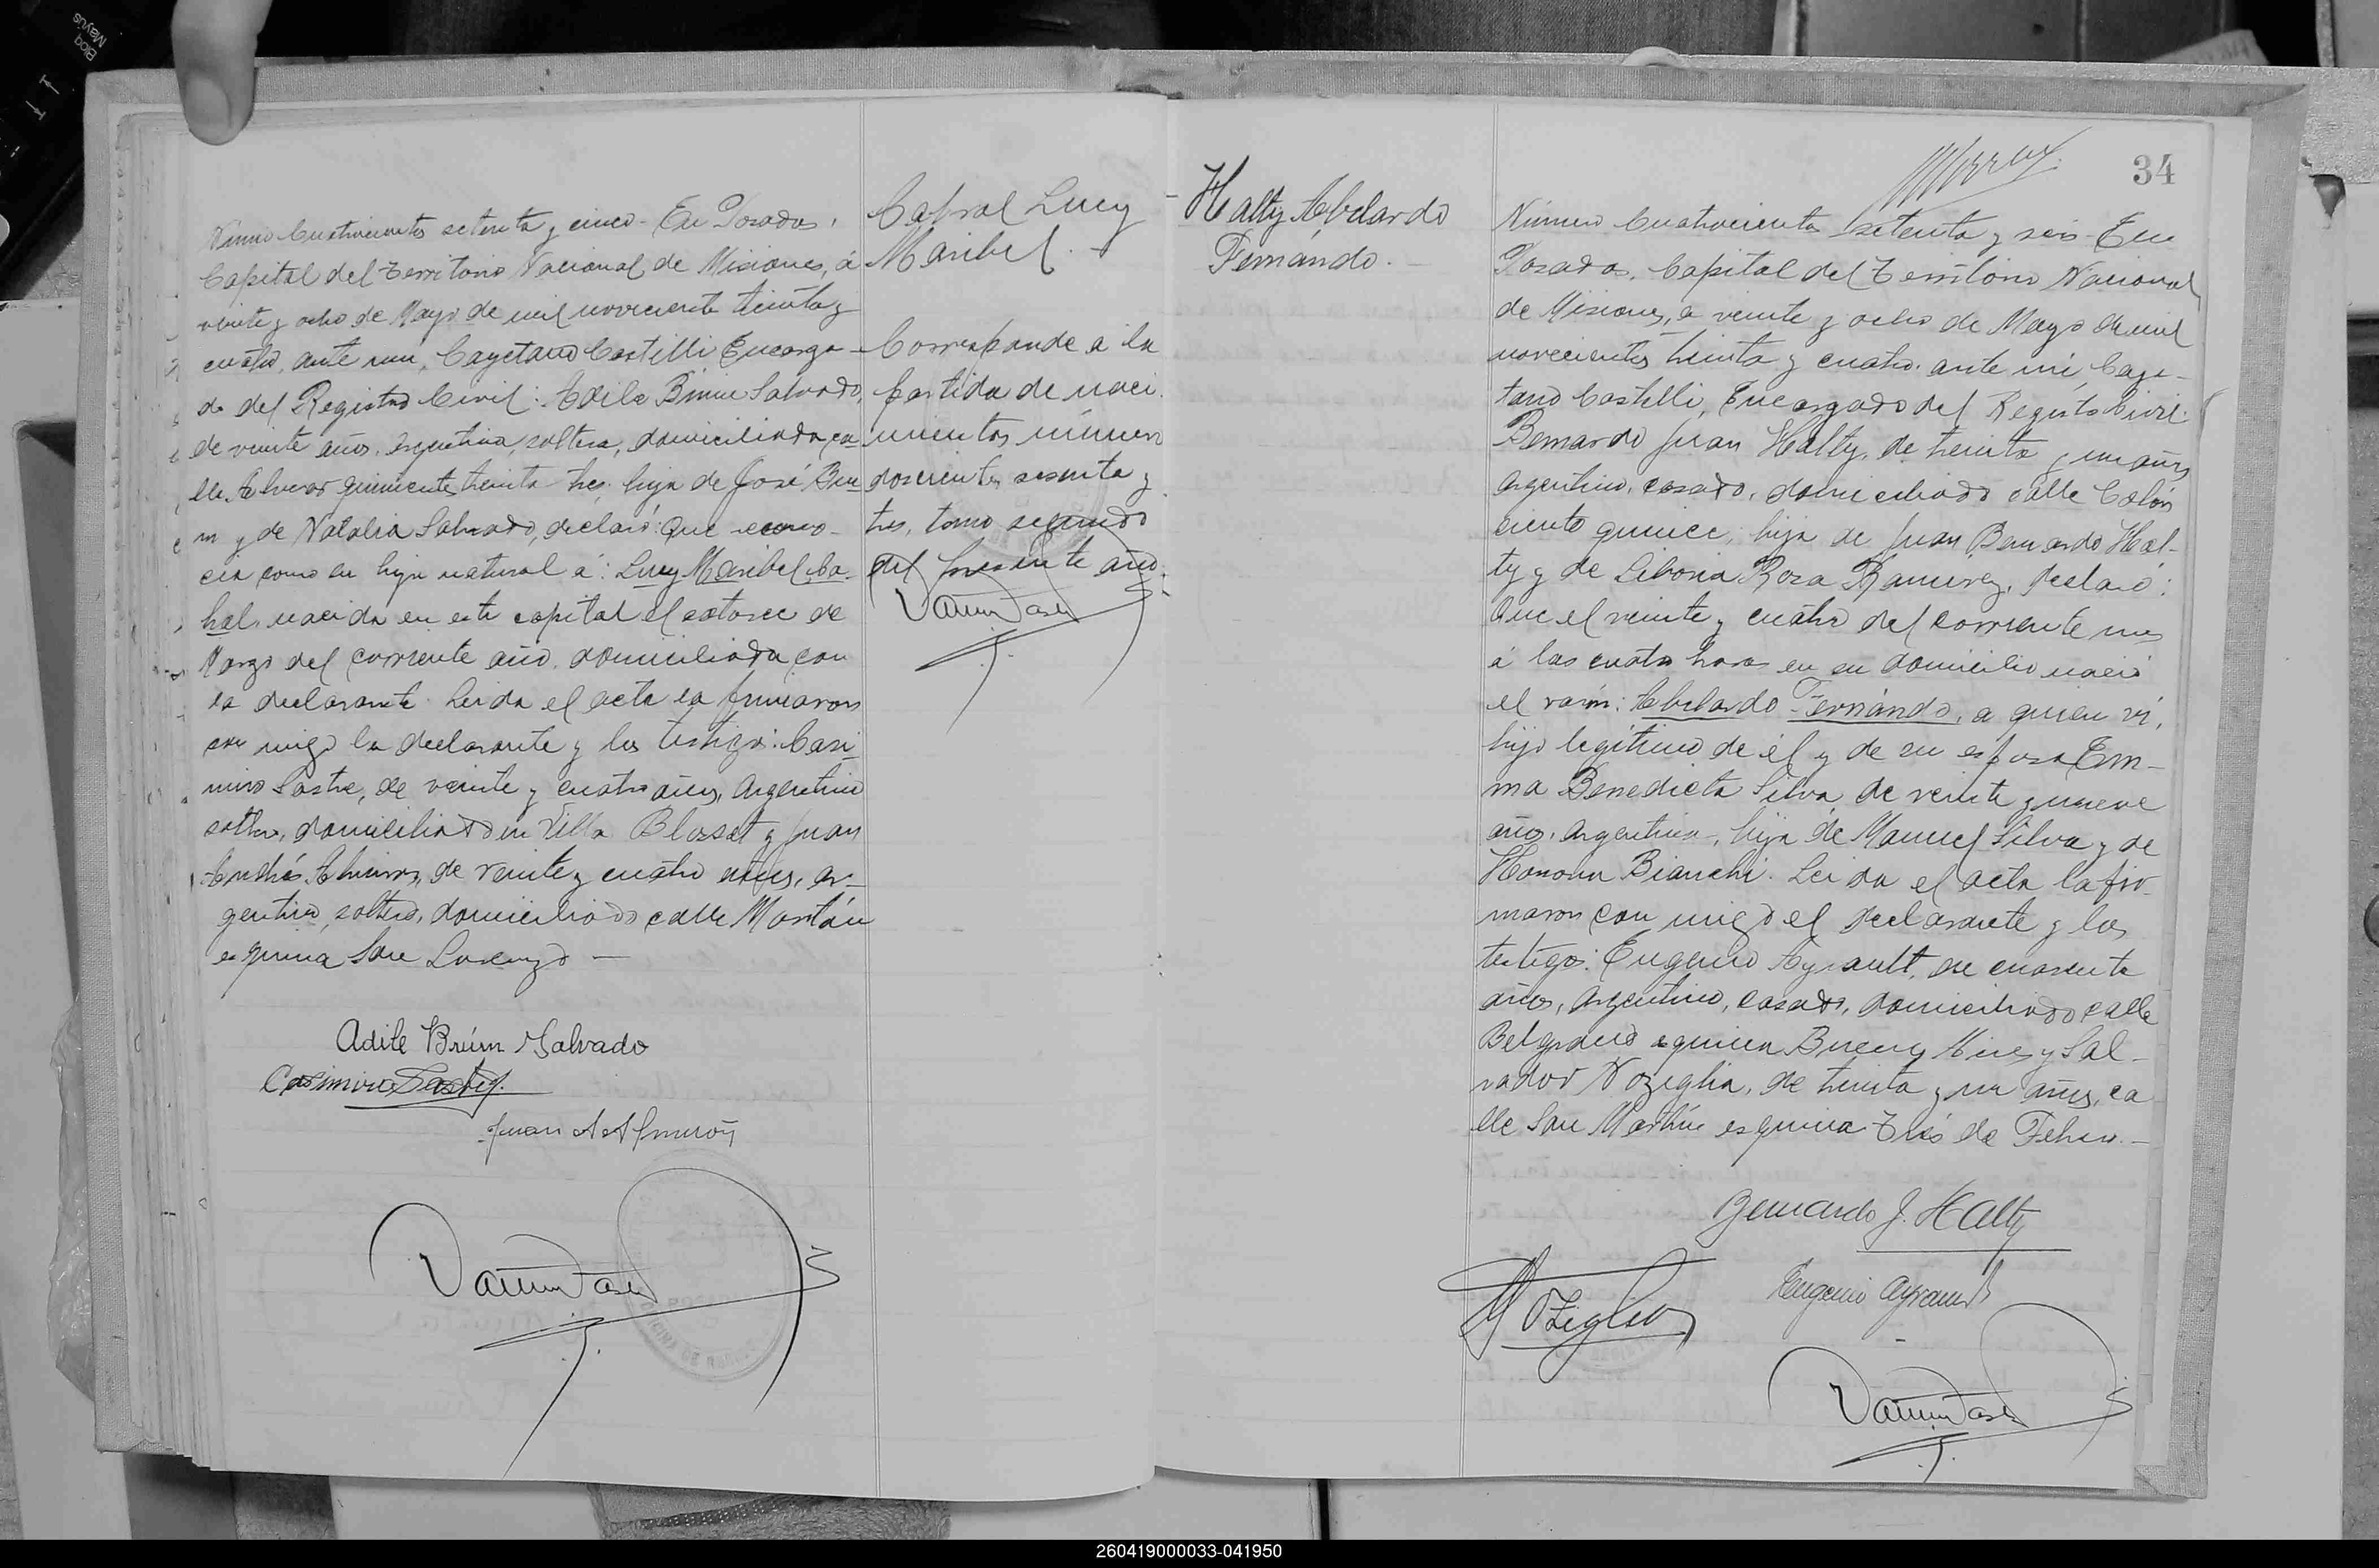 Número Cuatrocientos setenta y cinco - En Posadas,
Capital del Territorio Nacional de Misiones, á
veinte y ocho de Mayo de mil novecientos treinta y
cuatro, ante mi, Cayetano Castelli Encarga-
do del Registro Civil: Adila Brum Salvado,
de veinte años, argentina, soltera, domiciliada ca
lle Alvear quinientos treinta tres, hija de José Bru
m y de Natalia Salvado, declaró: Que recono-
cia como su hija natural á: Lucy Maribel Ca-
bral, nacida en esta capital el catorce de
Marzo del corriente año, domiciliada con
la declarante. Leida el acta la firmaron
con migo la declarante y los testigos: Casi
miro Sastre, de veinte y cuatro años, argentino
soltero, domiciliado en Villa Blosset y Juan
Andrés Almirón, de veinte y cuatro años, ar-
gentino, soltero, domiciliado calle
esquina San Lorenzo —
Adile Brúm Salvado
Casimiro Sastre
Juan A Almirón
Cabral Lucy
Maribel. -
Corresponde a la
partida de naci
mientos número
doscientos sesenta y
tres, tomo segundo
del presente año.
Halty Abelardo
Fernándo. -
34
Número Cuatrocientos setenta y seis - En
Posadas, Capital del Territorio Nacional
de Misiones, a veinte y ocho de Mayo de mil
novecientos treinta y cuatro, ante mi, Caye-
tano Castelli, Encargado del Registro Civil:
Bernardo Juan Halty, de treinta y un años
argentino, casado, domiciliado calle Colón
ciento quince, hijo de Juan Bernardo Hal-
ty y de Liboria Roza Ramírez, declaró:
Que el veinte y cuatro del corriente mes
á las cuatro horas en su domicilio nació
el varón: Abelardo Fernándo, a quien ví,
hijo legítimo de él y de su esposa Em-
ma Benedicta Silva, de veinte y nueve
años, argentina, hija de Manuel Silva y de
Bianchi. Leida el acta la fir-
maron con migo el declarante y los
testigos: Eugenio Ayrault, de cuarenta
años, argentino, casado, domiciliado calle
Belgrano esquina Buenos Aires y Sal-
vador Noziglia, de treinta y un años, ca
lle San Martín esquina Trés de Febrero. -
Bernardo J. Halty
Noziglia
Eugenio Ayrault
260419000033-041950